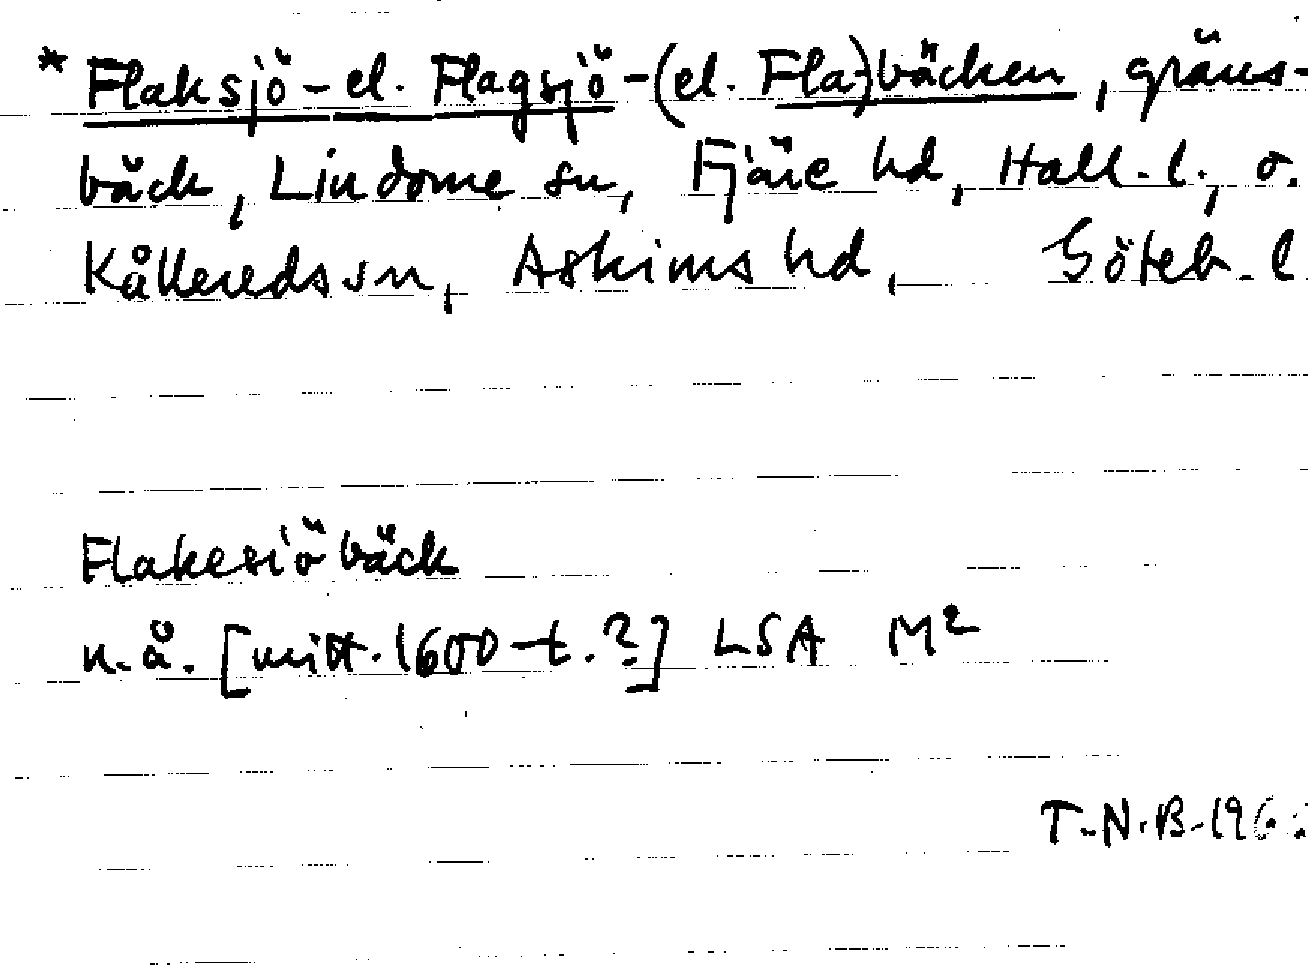 * Flaksjö- el. Flagsjö-(el. Fla-)bäcken, gräns-
bäck, Lindome sn, Fjäre hd, Hall. l., o.
Kållereds sn, Askims hd, Göteb. l.
Flakesiöbäck
u. å. [mitt. 1600-t.?] LSA M²
T.N.B. 196